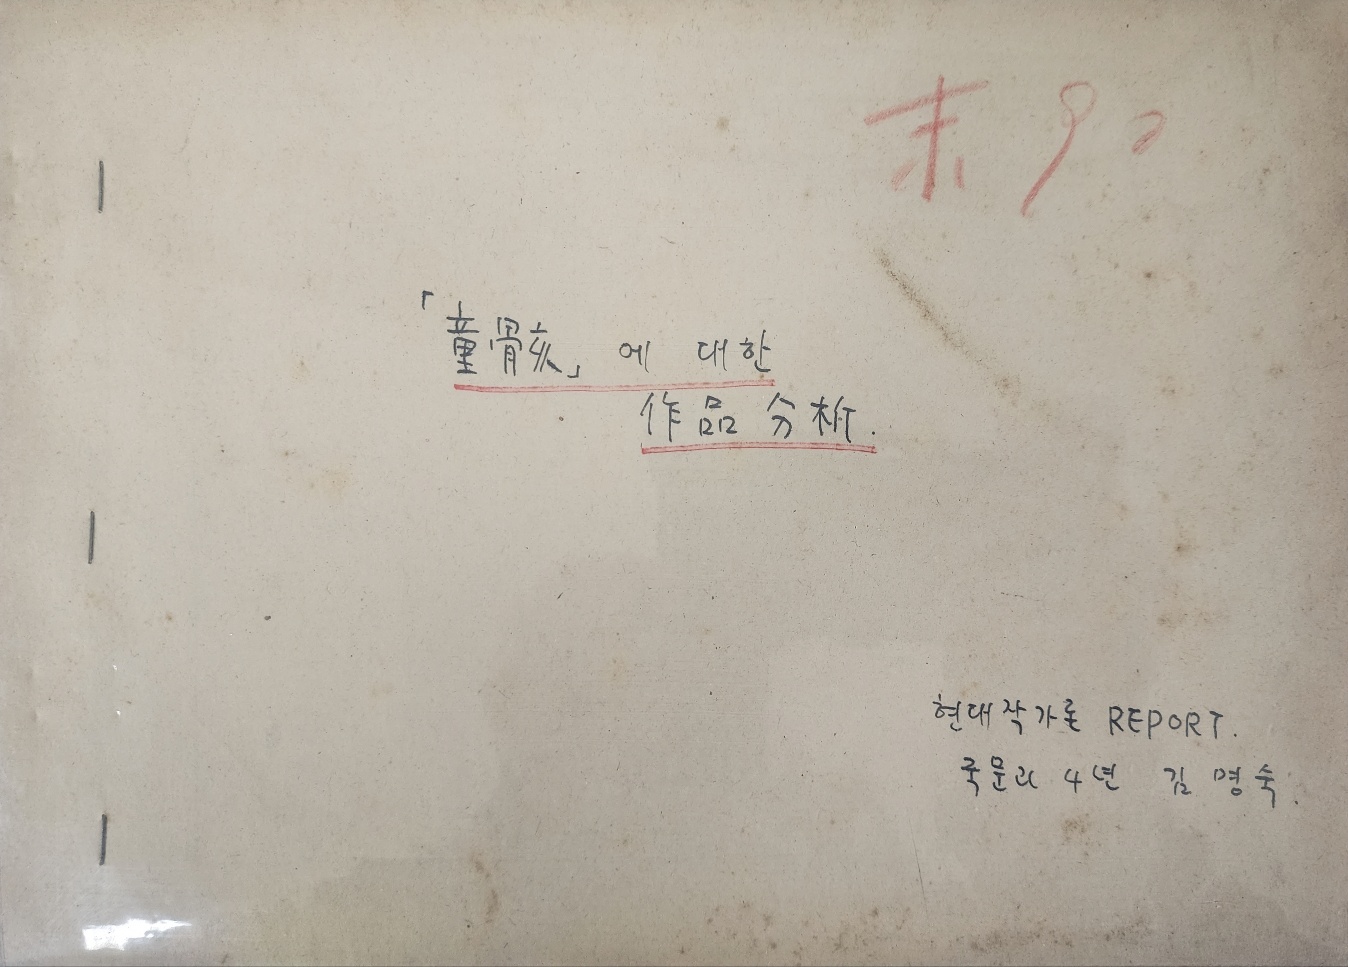 「童骸」에 대한
作品分析.
현대작가론 REPORT.
국문과 4년 김명숙.